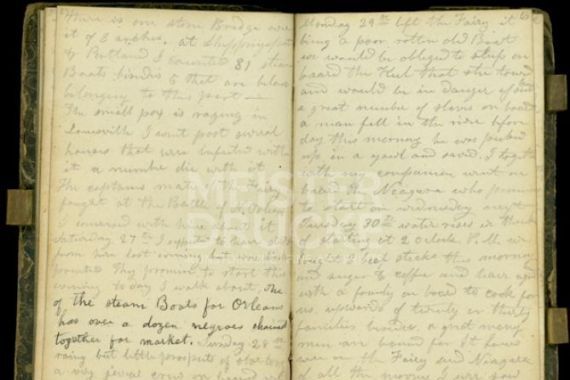 There is one stone Bridge over
it of 3 arches. at Shippingsport
& Portland I counted 81 steam
Boats besides 5 that are
belonging to this port
The small pox is raging in
Louisville I went past several
houses that were infected with
it a number die with it.
The captains mate of the Fairy
fought at the Battle
I conversed with him about it
Saturday 27th I expected to have
from here last evening but was
They promise to start this
evening to day I walk about. One
of the steam Boats for Orleans
has over a dozen negroes chained
together for market. Sunday 28th
rainy but little prospects of
a very jovial crew on board
Monday 29th left the Fairy it
being a poor rotten old Boat
we would be obliged to sleep on
board the Keel that she towed
and would be in danger
a great number of slaves on board
a man fell in the river before
day this morning he was picked
up in a yawl and saved. I together
with my companion went on
board the Niagara who promises
to start on wednesday next
Tuesday 30th water rises
of starting at 2 Oclock P.M. we
bought beef steaks this morning
and sugar & coffee and
with a family on board to cook for
us. upwards of twenty or thirty
families besides. a great many
men are bound for St
were in the Fairy and Niagara
of all the men I ever saw
MEISTER
DRUCKE